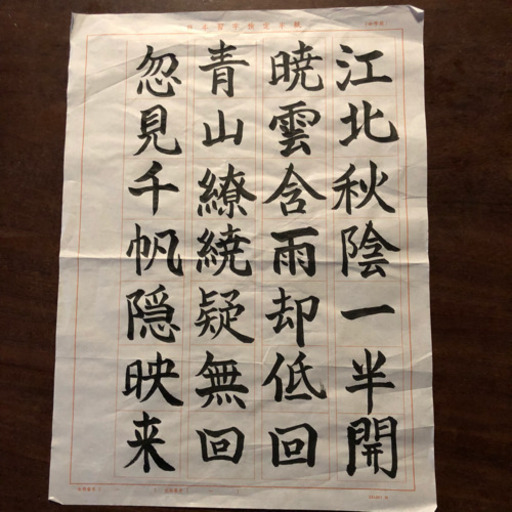 江北秋陰一半開
暁雲含雨却低回
青山繚繞疑無回
忽見千帆隠映来